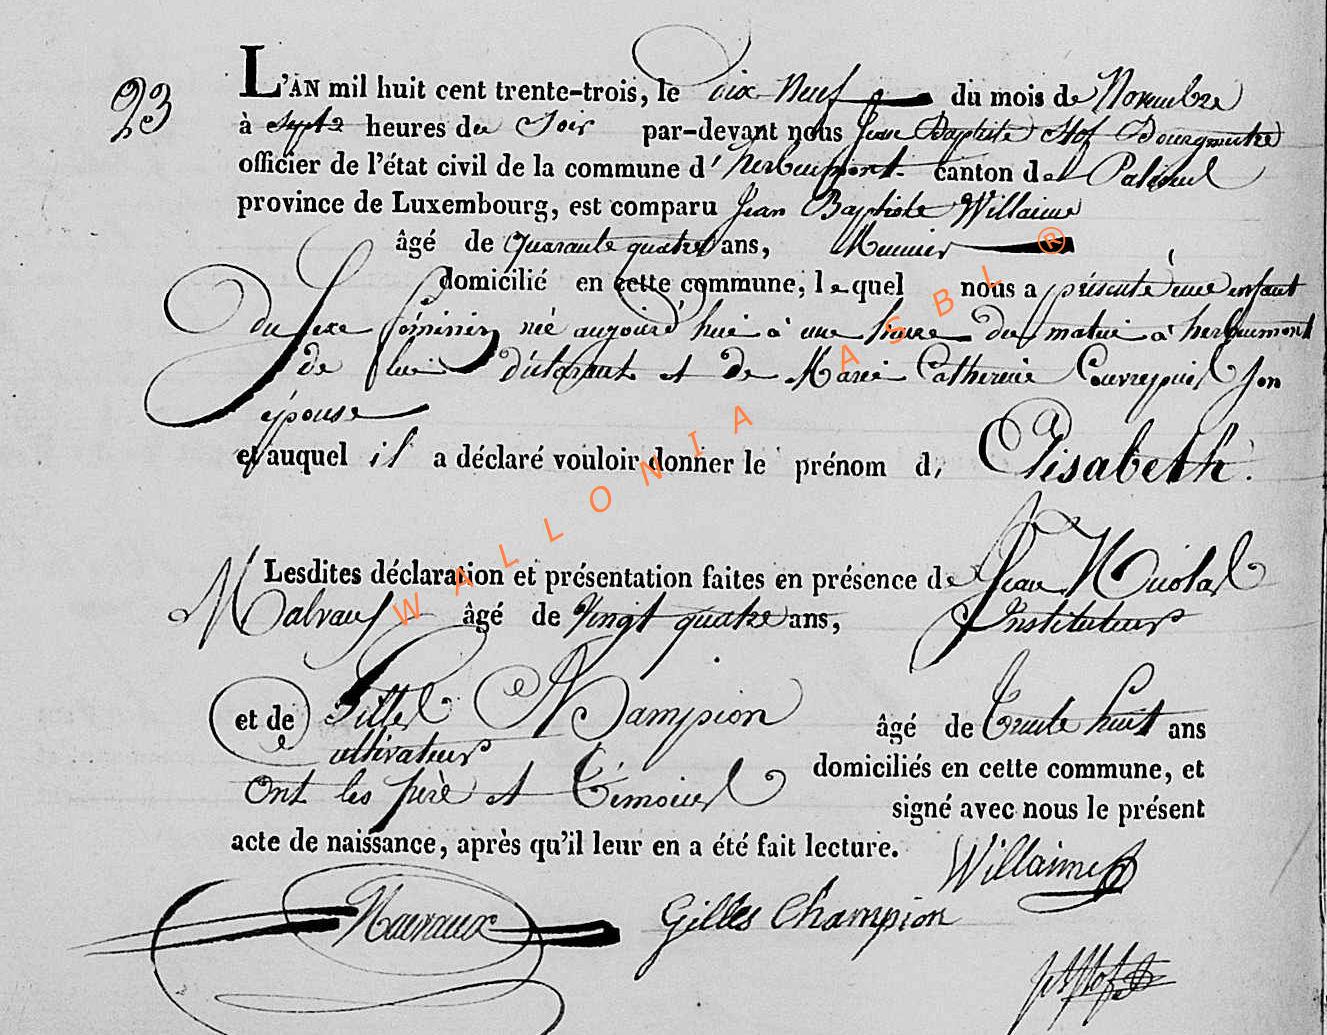 23
L'AN mil huit cent trente-trois, le dix Neuf du mois de Novembre
à Sept heures du Soir par-devant nous Jean Baptiste Hof Bourgmestre
officier de l'état civil de la commune d'herbeumont canton de Paliseul
province de Luxembourg, est comparu Jean Baptiste Willaime
âgé de quarante quatre ans, Meunier
domicilié en cette commune, lequel nous a présenté une enfant
du sexe féminin née aujourd'hui à une heure du matin à herbeumont
de lui déclarant et de Marie Catherine Couvrepuis son
épouse
et auquel il a déclaré vouloir donner le prénom d' Elisabeth.
Lesdites déclaration et présentation faites en présence de Jean Nicolas
Malvaux âgé de Vingt quatre ans, Instituteur
et de Gilles Champion âgé de Trente huit ans
cultivateur domiciliés en cette commune, et
Ont les père et Témoins signé avec nous le présent
acte de naissance, après qu'il leur en a été fait lecture.
Willaime
Gilles Champion
JB Hof
WALLONIA ASBL ®